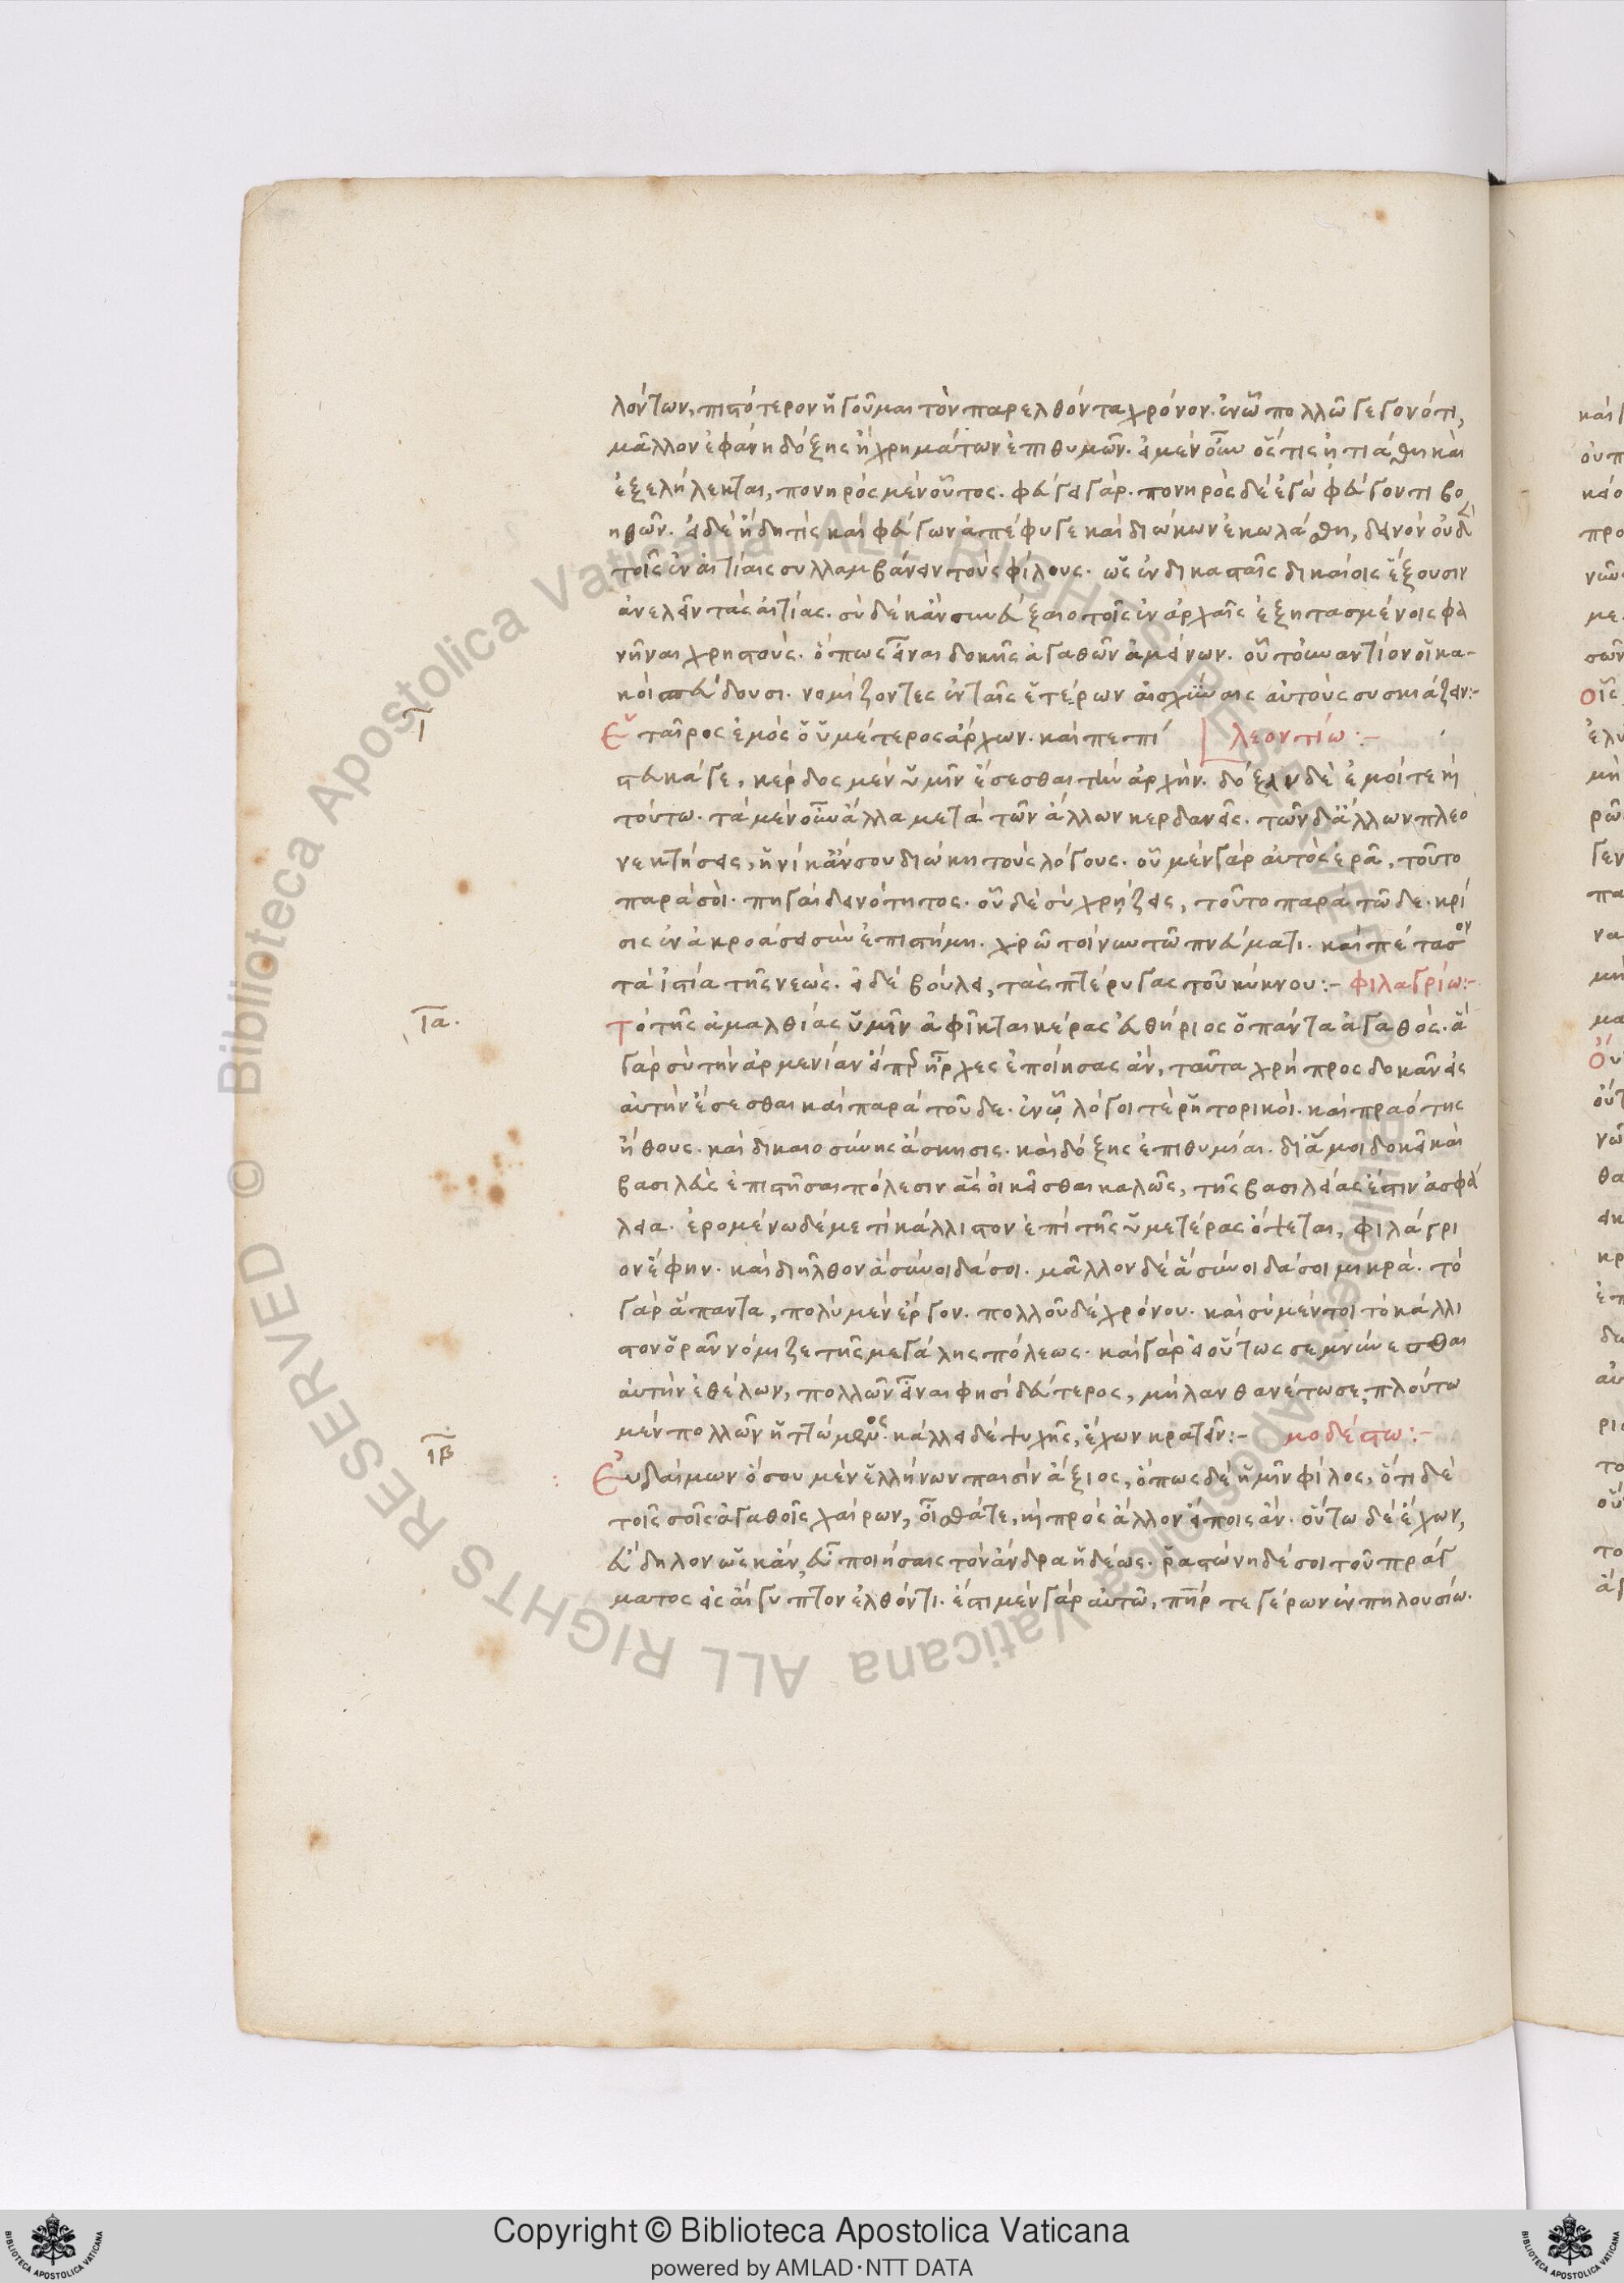 λόντων, πιστότερον ἡγοῦμαι τὸν παρελθόντα χρόνον. ἐν ᾧ πολλῷ γεγονότι,
μᾶλλον ἐφάνη δόξης ἢ χρημάτων ἐπιθυμῶν. εἰ μὲν οὖν ὅστις ᾐτιάθη καὶ
ἐξελήλεκται, πονηρὸς μὲν οὗτος. φεύγει γάρ. πονηρὸς δὲ ἐγὼ φεύγοντι βο
ηθῶν. εἰ δὲ ἤδη τὶς καὶ φεύγων ἀπέφυγε καὶ διώκων ἐκωλάσθη, δεινὸν οὐδὲν
τοῖς ἐν αἰτίαις συλλαμβάνειν τοὺς φίλους. ὡς ἐν δικασταῖς δικαίοις ἕξουσιν
ἀνελεῖν τὰς αἰτίας. σὺ δὲ κἂν συνεύξαιο τοῖς ἐν ἀρχαῖς ἐξητασμένοις φα
νῆναι χρηστούς. ὅπως εἶναι δοκῇς ἀγαθῶν ἀμείνων. οὗ τοὐναντίον οἱ κα-
κοὶ σπεύδουσι. νομίζοντες ἐν ταῖς ἑτέρων αἰσχύναις αὐτοὺς συσκιάζειν:-
Ι
Ἑταῖρος ἐμὸς ὁ ὑμέτερος ἄρχων. καὶ πεπί
λεοντίω:-
στευκά γε, κέρδος μὲν ὑμῖν ἔσεσθαι τὴν ἀρχὴν. δόξαν δὲ ἐμοί τε καὶ
τούτω. τὰ μὲν οὖν ἄλλα μετὰ τῶν ἄλλων κερδανεῖς. τῶν δ' ἄλλων πλεο
νεκτήσεις, ἡνίκ' ἄν σου διώκη τοὺς λόγους. οὗ μὲν γὰρ αὐτὸς ἐρᾷ, τοῦτο
παρὰ σοὶ. πηγαὶ δεινότητος. οὗ δὲ σὺ χρῄζεις, τοῦτο παρὰ τῷδε. κρί
σις ἐν ἀκροάσει σὺν ἐπιστήμη. χρῶ τοίνυν τῷ πνεύματι. καὶ πέτασον
τὰ ἱστία τῆς νεώς. εἰ δὲ βούλει, τὰς πτέρυγας τοῦ κύκνου:- φιλαγρίω:-
ΙΑ.
Τὸ τῆς ἀμαλθίας ὑμῖν ἀφῖκται κέρας εὐθήριος ὁ πάντα ἀγαθός. ἃ
γὰρ σὺ τὴν ἀρμενίαν εἴπερ ἦρχες ἐποίησας ἄν, ταῦτα χρὴ προσδοκᾶν εἰς
αὐτὴν ἔσεσθαι καὶ παρὰ τοῦδε. ἐν ᾧ λόγοι τὲ ῥητορικοὶ. καὶ πραότης
ἤθους. καὶ δικαιοσύνης ἄσκησις. καὶ δόξης ἐπιθυμίαι. δι' ἅ μοι δοκεῖ καὶ
βασιλεὺς ἐπιστῆσαι πόλεσιν ἃς οἰκεῖσθαι καλῶς, τῆς βασιλείας ἐστὶν ἀσφά
λεια. ἐρομένω δέ με τί κάλλιστον ἐπὶ τῆς ὑμετέρας ὄψεται, φιλάγρι
ον ἔφην. καὶ διῆλθον ἃ σύνοιδά σοι. μᾶλλον δὲ ἃ σύνοιδά σοι μικρά. τὸ
γὰρ ἅπαντα, πολὺ μὲν ἔργον. πολλοῦ δὲ χρόνου. καὶ σὺ μέντοι τὸ κάλλι
στον ὁρᾶν νόμιζε τῆς μεγάλης πόλεως. καὶ γὰρ εἰ οὕτως σεμνύνεσθαι
αὐτὴν ἐθέλων, πολλῶν εἶναι φησὶ δεύτερος, μὴ λανθανέτω σε, πλούτω
μὲν πολλῶν ἡττώμενος. κάλλει δὲ ψυχῆς, ἔχων κρατεῖν:- μοδέστω:-
ΙΒ
Εὐδαίμων ὅσου μὲν ἑλλήνων παισὶν ἄξιος, ὅπως δὲ ἡμῖν φίλος, ὅτι δὲ
τοῖς σοῖς ἀγαθοῖς χαίρων, οἶσθά τε, καὶ πρὸς ἄλλον εἴποις ἄν. οὕτω δὲ ἔχων,
εὔδηλον ὡς κἂν, εὖ ποιήσαις τὸν ἄνδρα ἡδέως. ῥαστώνη δέ σοι τοῦ πράγ
ματος εἰς αἴγυπτον ἐλθόντι. ἔστι μὲν γὰρ αὐτῷ, πῆρ τε γέρων ἐν πηλουσίω.
Copyright © Biblioteca Apostolica Vaticana
powered by AMLAD·NTT DATA